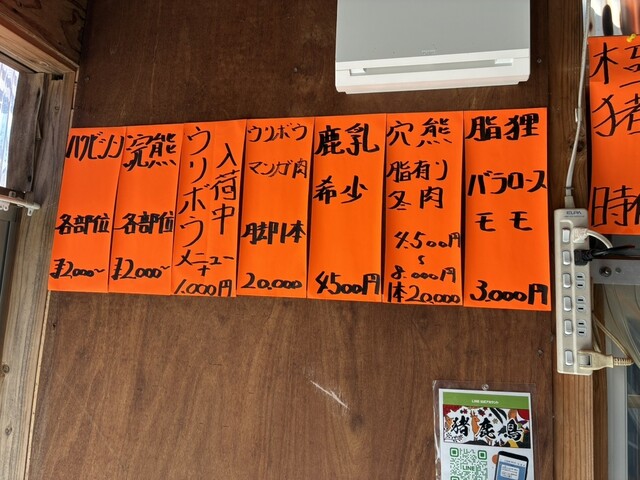 ハクビシン
各部位
¥2,000~
浣熊
各部位
¥2,000~
入荷中
ウリボウ
メニュー
+
1,000円
ウリボウ
マンガ肉
脚1本
20,000
鹿乳
希少
4500円
穴熊
脂有り
冬肉
4,500円
~
8,000円
1体20,000
脂狸
バラロース
モモ
3,000円
猪
時
ELPA
LINE
猪鹿鳥
LINE